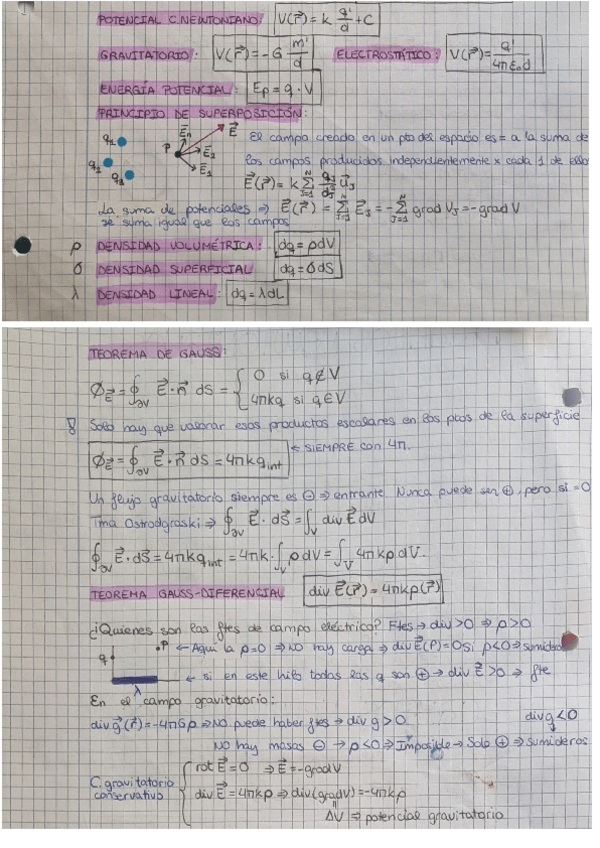 POTENCIAL C.NEWTONIANO: V(r⃗) = k q'/d + C
GRAVITATORIO: V(r⃗) = -G m'/d ELECTROSTÁTICO: V(r⃗) = q'/4πε₀d
ENERGÍA POTENCIAL: Ep = q · V
PRINCIPIO DE SUPERPOSICIÓN:
q₂ q₁ q₃ P E⃗n E⃗ E⃗₂ E⃗₁
El campo creado en un pto del espacio es = a la suma de
los campos producidos independientemente x cada 1 de ellos
E⃗(r⃗) = k Σ_{J=1}^{N} q_J/d_J² u⃗_J
La suma de potenciales ⇒ E⃗(r⃗) = Σ_{J=1}^{N} E⃗_J = -Σ_{J=1}^{N} grad V_J = -grad V
se suma igual que los campos
ρ DENSIDAD VOLUMÉTRICA: dq = ρdV
σ DENSIDAD SUPERFICIAL dq = σdS
λ DENSIDAD LINEAL: dq = λdL
TEOREMA DE GAUSS:
Φ_E⃗ = ∮_∂V E⃗·n⃗ dS = { 0 si q∉V
4πkq si q∈V
Solo hay que valorar esos productos escalares en los ptos de la superficie
Φ_E⃗ = ∮_∂V E⃗·n⃗ dS = 4πkq_int ← SIEMPRE con 4π.
Un flujo gravitatorio siempre es ⊖ ⇒ entrante. Nunca puede ser ⊕, pero si = 0
Tma Ostrodgraski ⇒ ∮_∂V E⃗·dS⃗ = ∫_V div E⃗ dV
∮_∂V E⃗·dS⃗ = 4πkq_int = 4πk·∫_V ρdV = ∫_V 4πkρdV.
TEOREMA GAUSS-DIFERENCIAL div E⃗(r⃗) = 4πkρ(r⃗)
¿Quienes son las ftes de campo eléctrico? Ftes → div > 0 ⇒ ρ > 0
q· ·P ← Aquí la ρ=0 ⇒ NO hay carga ⇒ div E⃗(P) = 0 Si ρ<0 ⇒ sumidero
λ ← si en este hilo todas las q son ⊕ → div E⃗ > 0 ⇒ fte
En el campo gravitatorio:
div g⃗(r⃗) = -4πGρ ⇒ NO puede haber ftes → div g > 0. div g < 0
NO hay masas ⊖ → ρ<0 ⇒ Imposible → Solo ⊕ ⇒ sumideros
C. gravitatorio conservativo { rot E⃗ = 0 ⇒ E⃗ = -grad V
div E⃗ = 4πkρ ⇒ div(grad V) = -4πkρ
ΔV ⇒ potencial gravitatorio